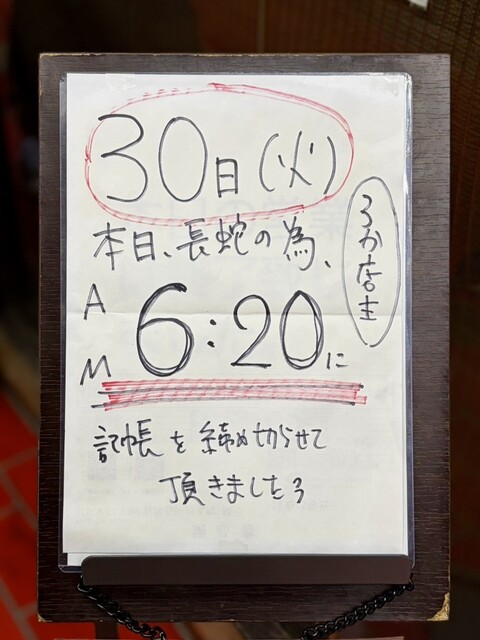 30日(火)
本日、長蛇の為、
AM 6:20に
記帳を締め切らせて
頂きました
う店主